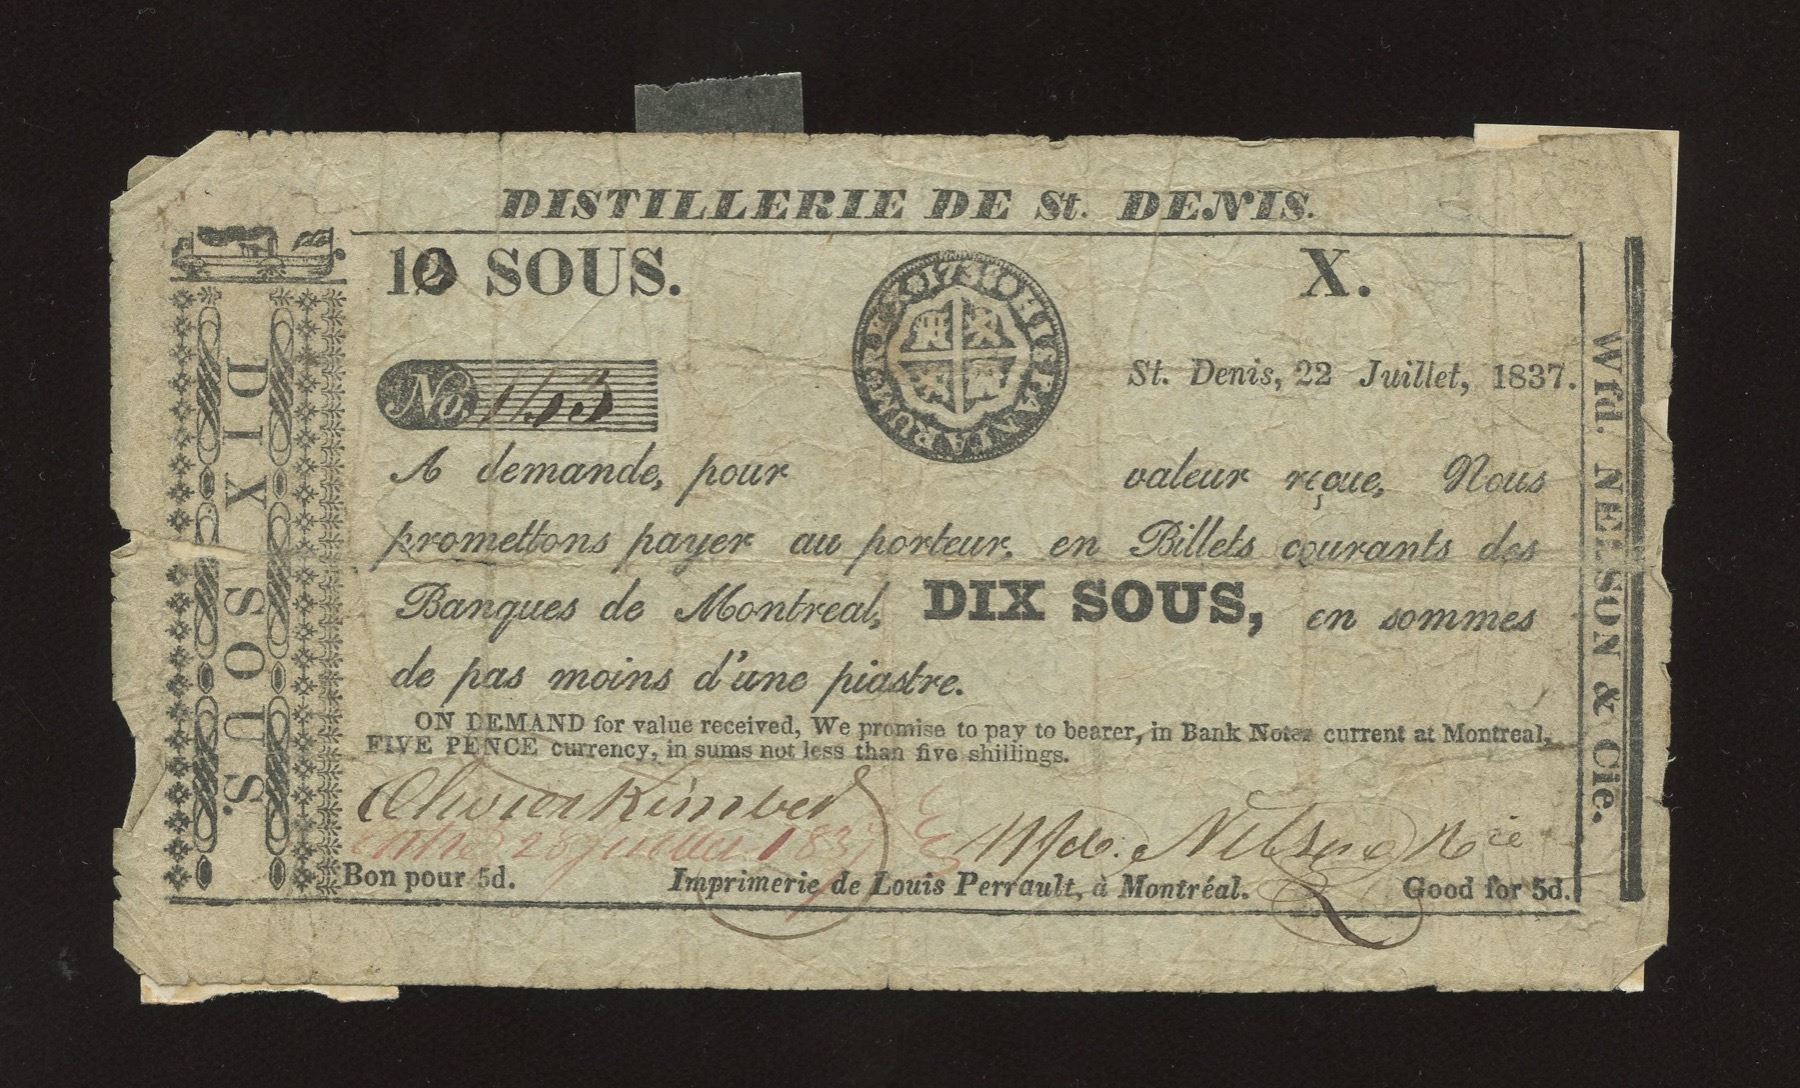 DISTILLERIE DE St. DENIS.
10 SOUS.
X.
HISPANIARUM REX 173
No. 153
St. Denis, 22 Juillet, 1837.
A demande, pour valeur rȩcue, Nous
promettons payer au porteur, en Billets courants des
Banques de Montreal, DIX SOUS, en sommes
de pas moins d'une piastre.
ON DEMAND for value received, We promise to pay to bearer, in Bank Notes current at Montreal,
FIVE PENCE currency, in sums not less than five shillings.
Olivier Kimber
entré 28 juillet 1837
Wfd. Nelson & Cie
Bon pour 5d.
Imprimerie de Louis Perrault, à Montréal.
Good for 5d.
DIX SOUS.
Wfd. NELSON & Cie.